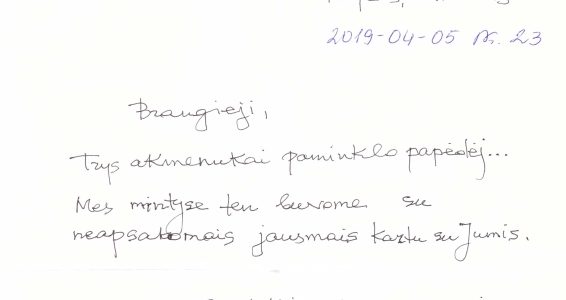 2019-04-05 Nr. 23
Brangieji,
Trys akmenukai paminklo papėdėj...
Mes mintyse ten buvome su
neapsakomais jausmais kartu su Jumis.